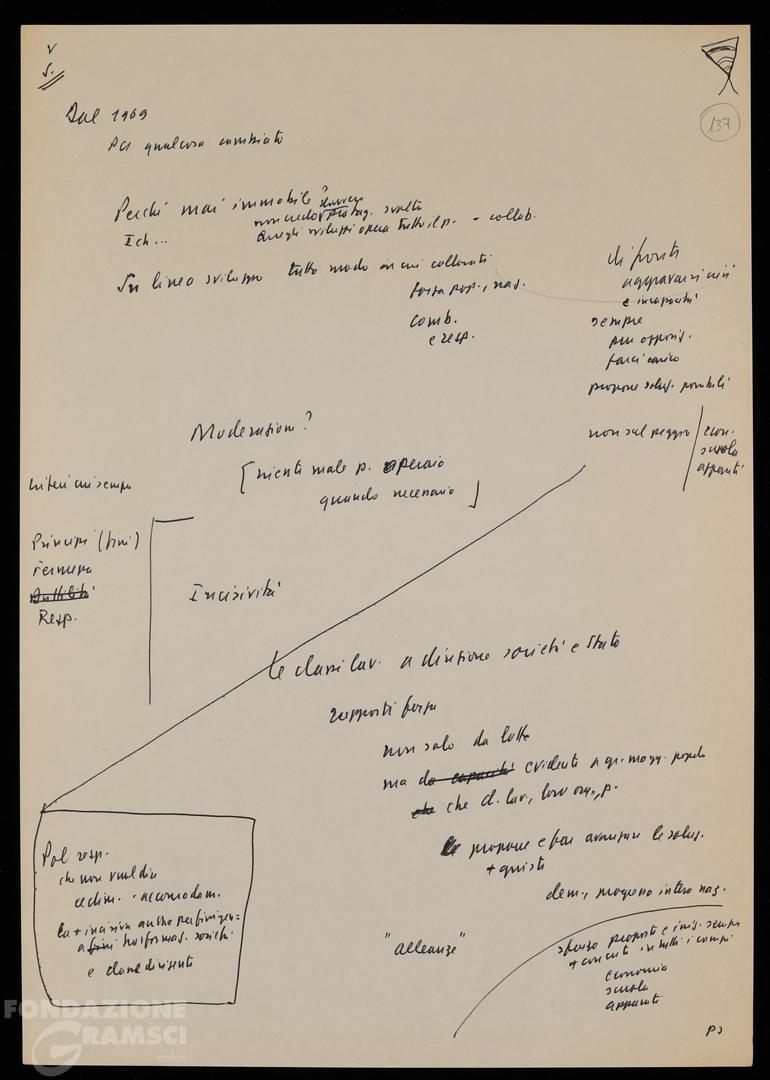 V
S.
137
Dal 1969
PCI qualcosa cambiato
Perché mai immobile?
non credo
svolta
Ich...
quegli sviluppi opera tutto il p. - collab.
In linea sviluppo tutto modo in cui collocati
forza pop., naz.
comb.
e resp.
di fronti
aggravarsi crisi
e incapacità
sempre
pur opposiz.
farci carico
propone soluz. possibili
non sul peggio
econ.
scuola
apparati
Moderazione?
[niente male p. operaio
quando necessario]
criteri cui sempre
Principi (fini)
Fermezza
Duttilità
Resp.
Incisività
le classi lav. a direzione società e Stato
rapporti forza
non solo da lotte
ma da capacità evidente a gr. magg. popolo
che che cl. lav., loro org., p.
le propone e fae avanzare le soluz.
+ giusti
dem., progresso intera naz.
Pol. resp.
che non vuol dire
cedim. - accomodam.
la + incisiva anche per
a fini trasformaz. società
e classe dirigente
"alleanze"
sforzo proposte e iniz. sempre
+ concrete in tutti i campi
economia
scuola
apparati
FONDAZIONE
GRAMSCI
onlus